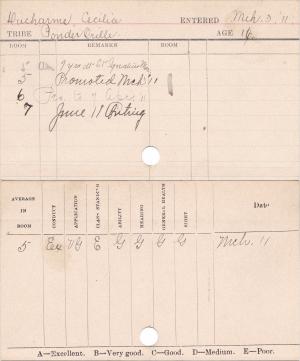 Ducharme, Cecilia ENTERED Mch. 3, '11.
TRIBE Ponder Orelle AGE 16
ROOM REMARKS ROOM
5
5 Promoted Mch '11
6
7 June 11
AVERAGE IN ROOM CONDUCT APPLICATION CLASS STAND'G ABILITY READING GENERAL HEALTH SIGHT Date
5 Ex VG E G G G G Mch. 11
A—Excellent. B—Very good. C—Good. D—Medium. E—Poor.